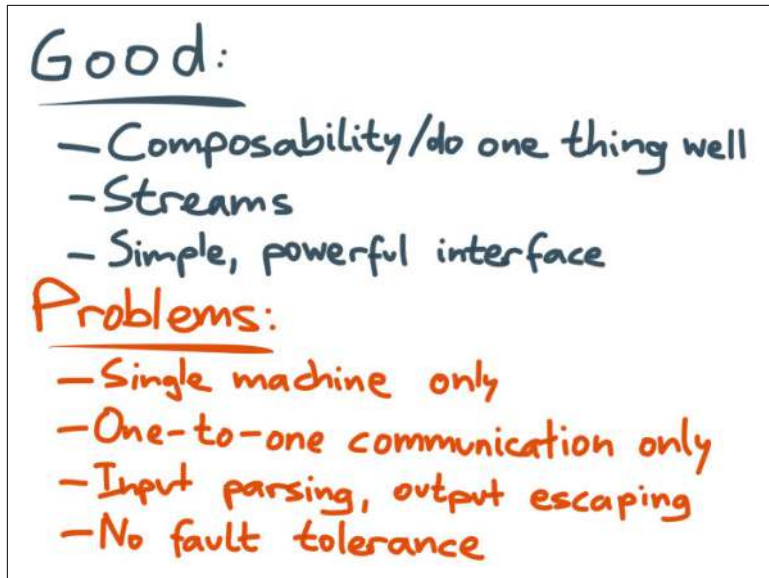 Good:
— Composability/do one thing well
— Streams
— Simple, powerful interface
Problems:
— Single machine only
— One-to-one communication only
— Input parsing, output escaping
— No fault tolerance